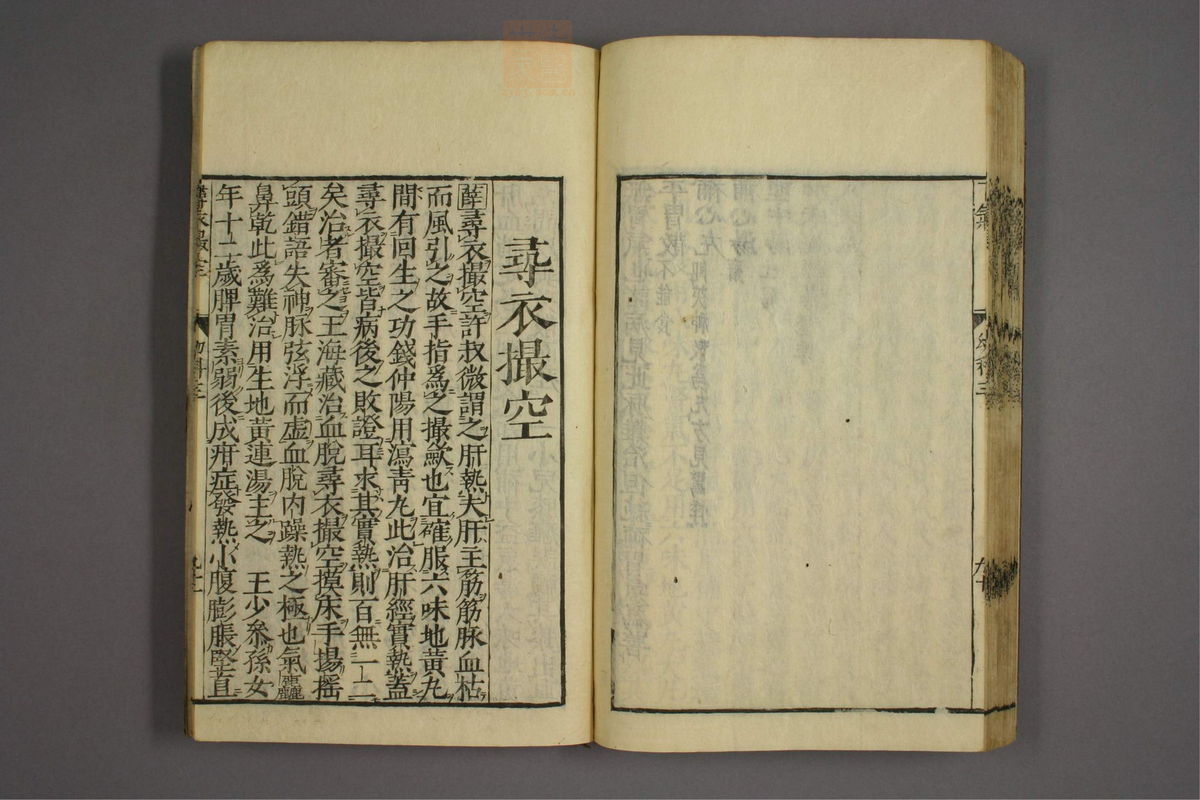 尋衣撮空
薛尋衣撮空許叔微謂之肝熱夫肝主筋筋脉血枯
而風引之故手指爲之撮斂也宜確服六味地黄丸
間有回生之功錢仲陽用瀉青丸此治肝經實熱蓋
尋衣撮空皆病後之敗證耳求其實熱則百無一二
矣治者審之王海藏治血脫尋衣撮空摸床手揚摇
頭錯語失神脉弦浮而虚血脫内躁熱之極也氣麤
鼻乾此爲難治用生地黄連湯主之 王少叅孫女
年十二歲脾胃素弱後成疳症發熱小腹膨脹堅直